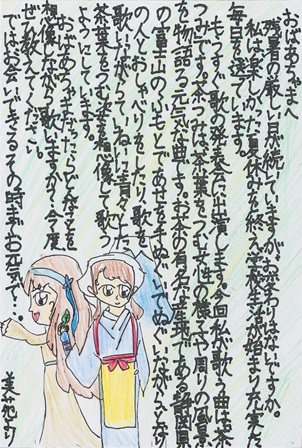 おばあちゃまへ
残暑の厳しい日が続いていますが、お変わりはないですか。
私は楽しかった夏休みを終え、学校生活が始まり充実した
毎日を送っています。
もうすぐ歌の発表会に出演します。今回私が歌う曲は茶
つみです。茶つみは、茶葉をつむ女性の様子や周りの風景
を物語った元気な曲です。日本の有名な茶畑である静岡県
の富士山のふもとであせを手ぬぐいでぬぐいながらとなり
の人とおしゃべりをしたり、歌を
歌いながらつみ、青々とした
茶葉をつむ姿を想像して歌う
ようにしています。
おばあちゃまだったらどんな姿を
想像しながら歌いますか?今度
ぜひ教えてください。
ではお会いできるその時までお元気で。
より